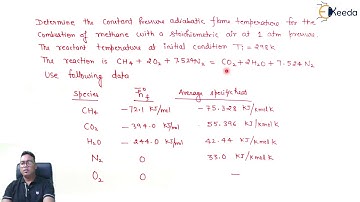 Keeda
Determine the Constant Pressure adiabatic flame temperature for the
Combustion of methane with a stoichiometric air at 1 atm pressure.
The reactant temperature at initial condition Ti = 298K
The reaction is CH4 + 2O2 + 7.52N2 = CO2 + 2H2O + 7.52 N2
Use following data
Species h̄°f Average specific heats
CH4 -72.1 KJ/mol -75.328 KJ/kmol K
CO2 -394.0 KJ/mol 55.396 KJ/kmol K
H2O -244.0 KJ/mol 42.44 KJ/kmol K
N2 0 33.0 KJ/kmol K
O2 0 —